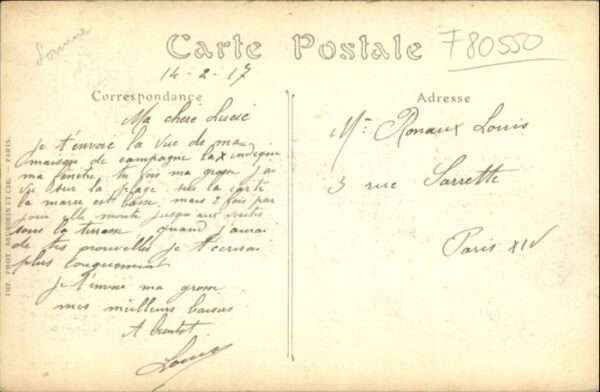 Lorraine
Carte Postale
F80550
14-2-17
Correspondance
Adresse
Ma cheré Lucie
je t'envoie la vue de ma
maison de campagne la X indique
ma fenêtre tu vois ma grosse j'ai
vue sur la plage sur la carte
la maree est basse mais 2 fois par
jour elle monte jusqu'aux
sous la terrasse quand j'aurai
de tes nouvelles je t'ecrirai
plus longuement
je t'envoie ma grosse
mes meilleurs baisers
A bientot
Louis
Mr Ronaux Louis
3 rue Sarrette
Paris XIV
IMP. PHOT. NEURDEIN ET CIE. — PARIS.